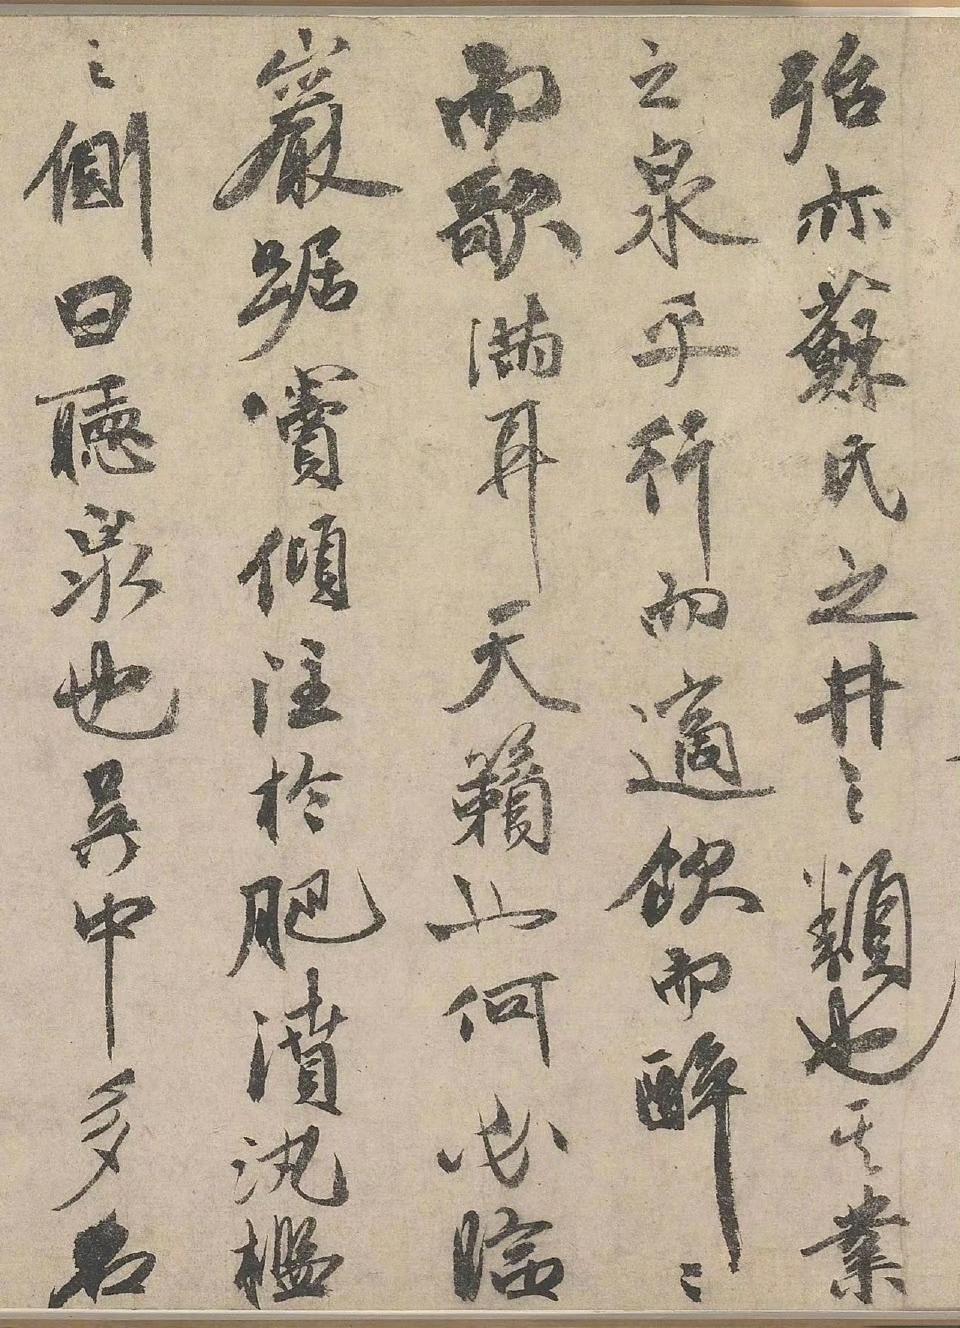 殆亦蘇氏之井之類也其業
之泉乎行而適飲而醉々
而歌滿耳天籟此何必臨
巖踞竇傾注於肥濆氿檻
之側曰聽泉也吳中多名